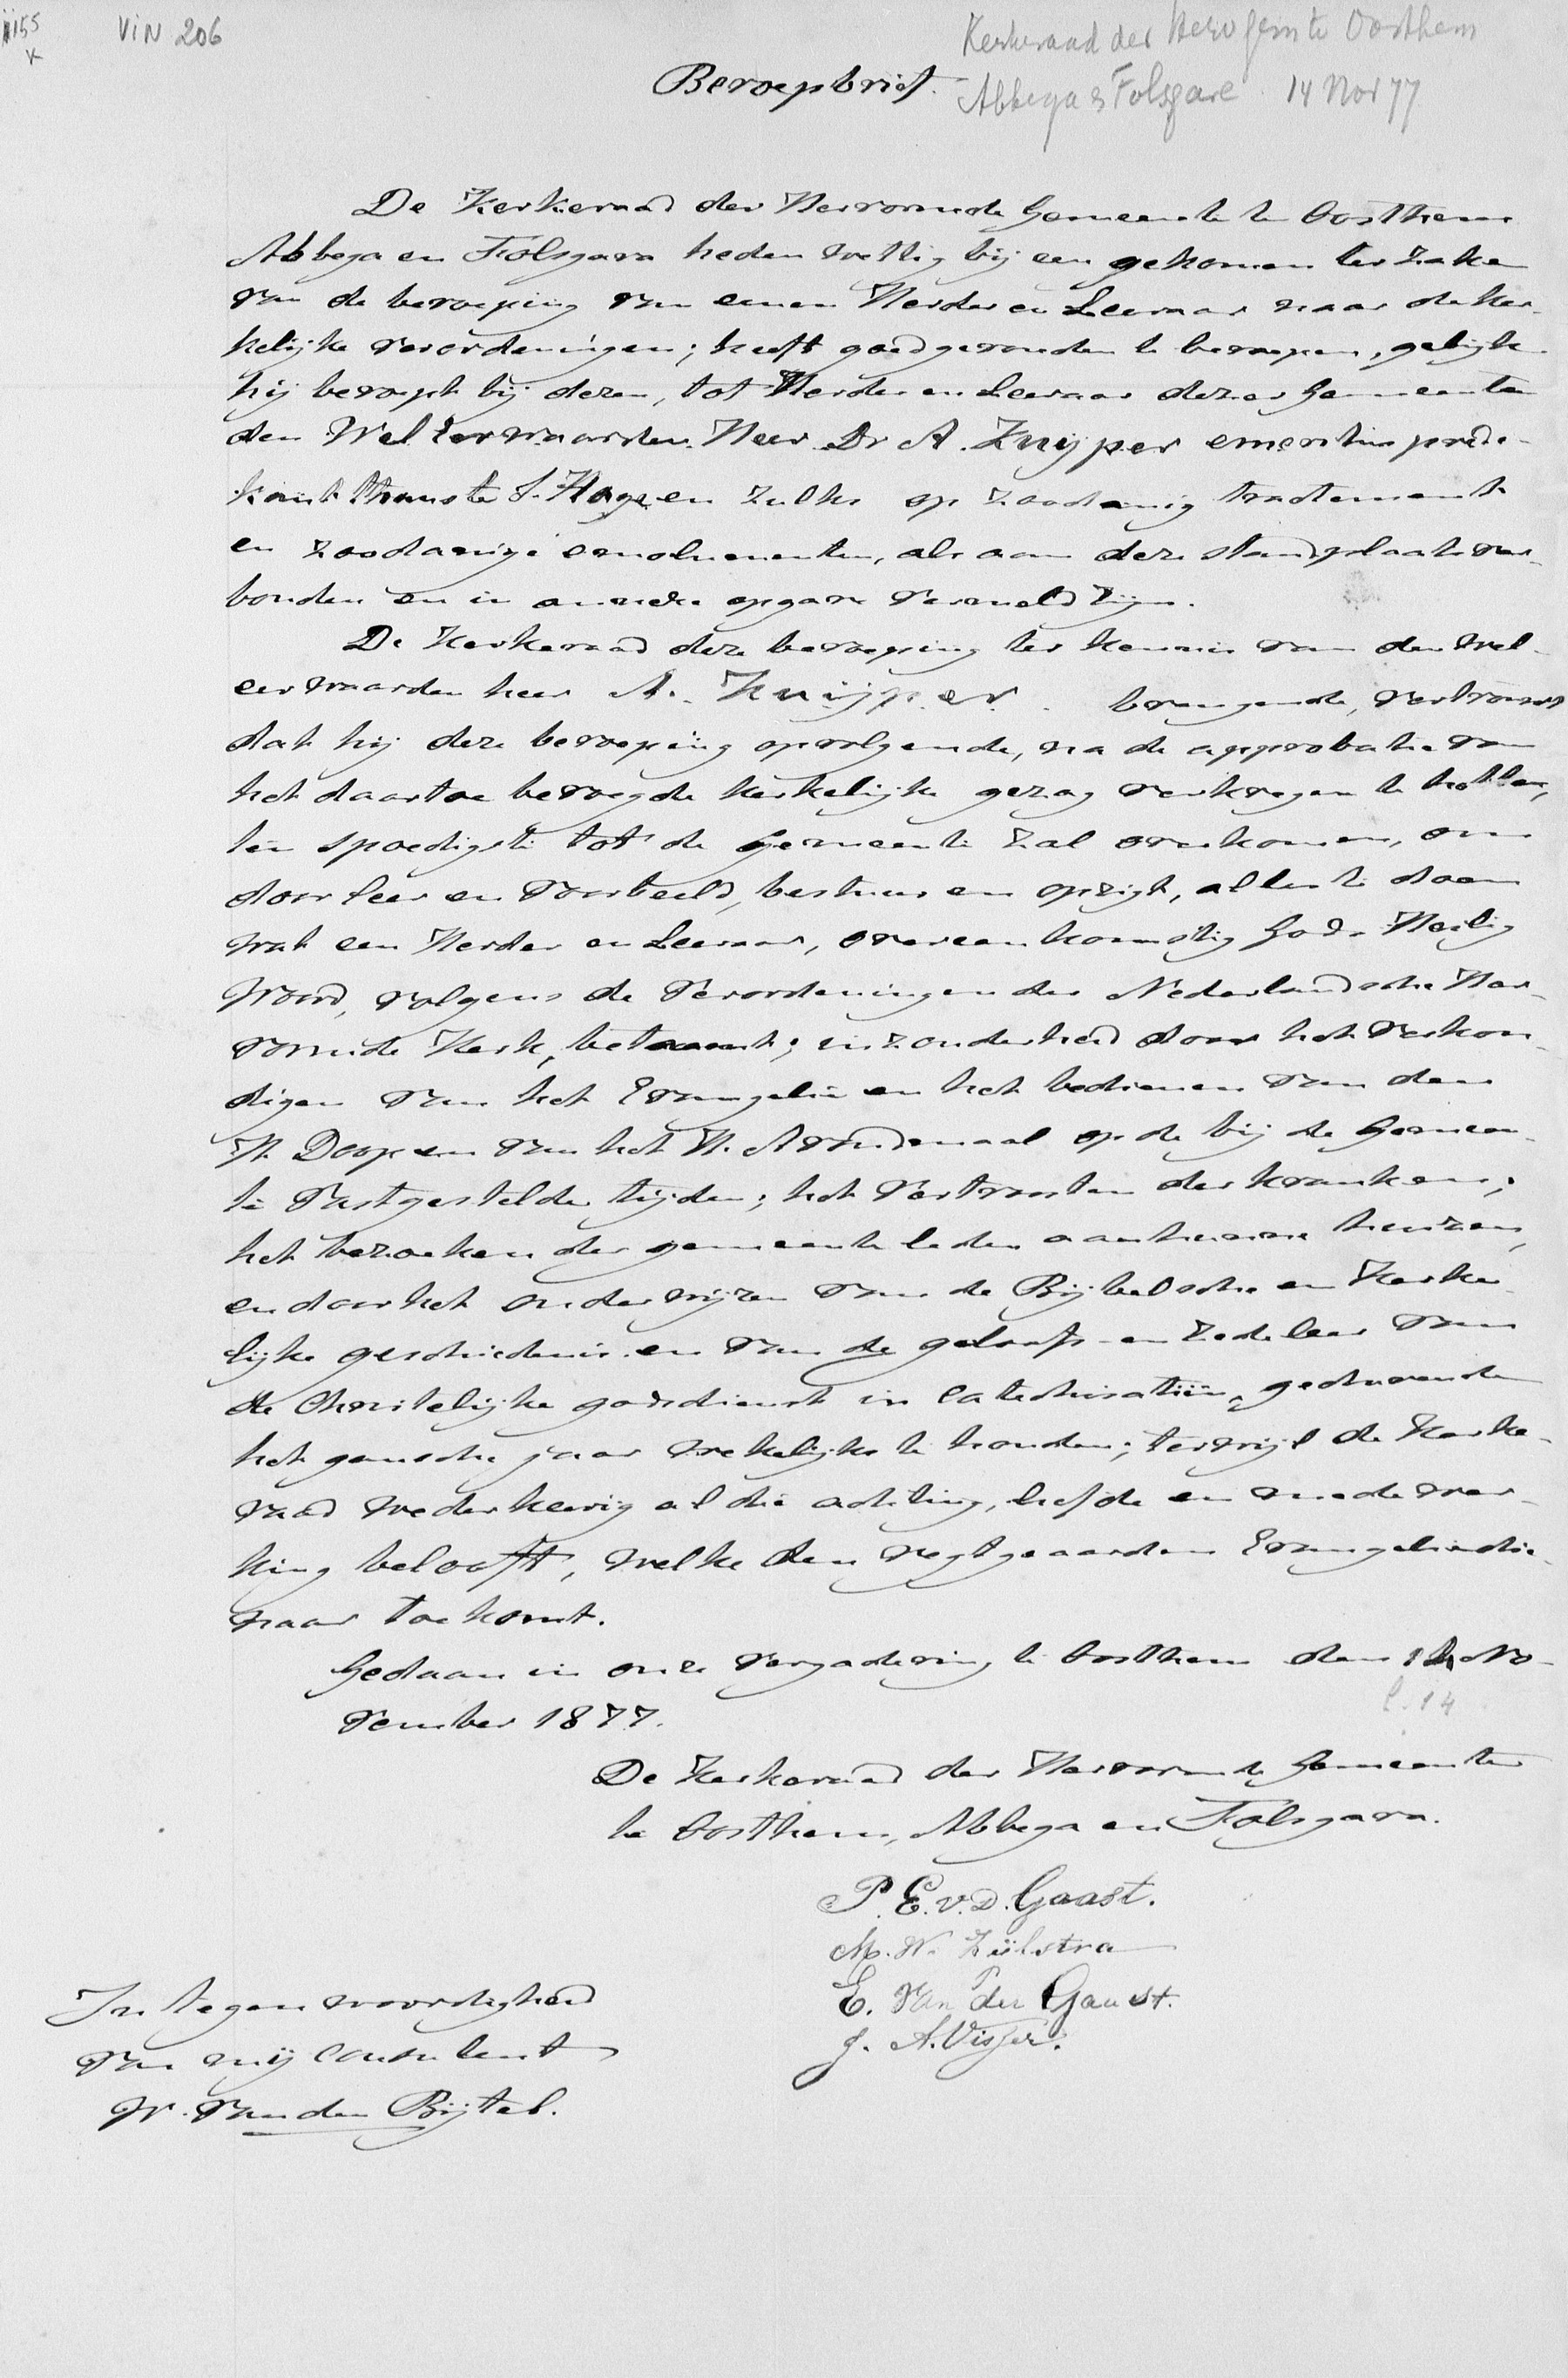 1155
x
ViN 206
Kerkeraad der Herv Gem te Oosthem
Abbega & Folsgare 14 Nov 77
Beroepbrief.
De Kerkeraad der Hervormde Gemeente te Oosthem
Abbega en Folsgara heden wettig bij een gekomen ter zake
van de beroeping van eenen Herder en Leeraar naar de ker-
kelijke verordeningen; heeft goedgevonden te beroepen, gelijk
hij beroept bij dezen, tot Herder en Leeraar dezer Gemeente
den Wel Eerwaarden Heer Dr A. Kuijper emeritus predi-
kant thans te S. Hage en zulks op zoodanig tractement
en zoodanige emolumenten, als aan deze standplaats ver-
bonden en in annexe opgave vermeld zijn.
De Kerkeraad deze beroeping ter kennis van den wel-
eerwaarden heer A. Kuijper. brengende, vertrouwt
dat hij deze beroeping opvolgende, na de approbatie van
het daartoe bevoegde kerkelijke gezag verkregen te hebben,
ten spoedigste tot de Gemeente zal overkomen, om
door leer en voorbeeld, bestuur en opzigt, alles te doen
wat een Herder en Leeraar, overeenkomstig Gods Heilig
Woord, volgens de Verordeningen der Nederlandsche Her-
vormde Kerk, betaamt; inzonderheid door het verkon-
digen van het Evangelie en het bedienen van den
H. Doop en van het H. Avondmaal op de bij de Gemeen-
te vastgestelde tijden; het vertroosten der kranken;
het bezoeken der gemeenteleden aan hunne huizen,
en door het onderwijzen van de Bijbelsche en Kerke-
lijke geschiedenis en van de geloofs- en zedeleer van
de Christelijke godsdienst in catechisatiën, gedurende
het gansche jaar wekelijks te houden; terwijl de Kerke-
raad wederkeerig al die achting, liefde en medewer-
king belooft, welke den regtgeaarden Evangeliedie-
naar toekomt.
Gedaan in onze vergadering te Oosthem den 14 No-
l. 14
vember 1877.
De Kerkeraad der Hervormde Gemeente
te Oosthem, Abbega en Folsgara.
P. E. v. d. Gaast.
M. W. Zijlstra
E. P van der Gaast.
J. A. Visser.
In tegenwoordigheid
van mij consulent
W. van den Bijtel.